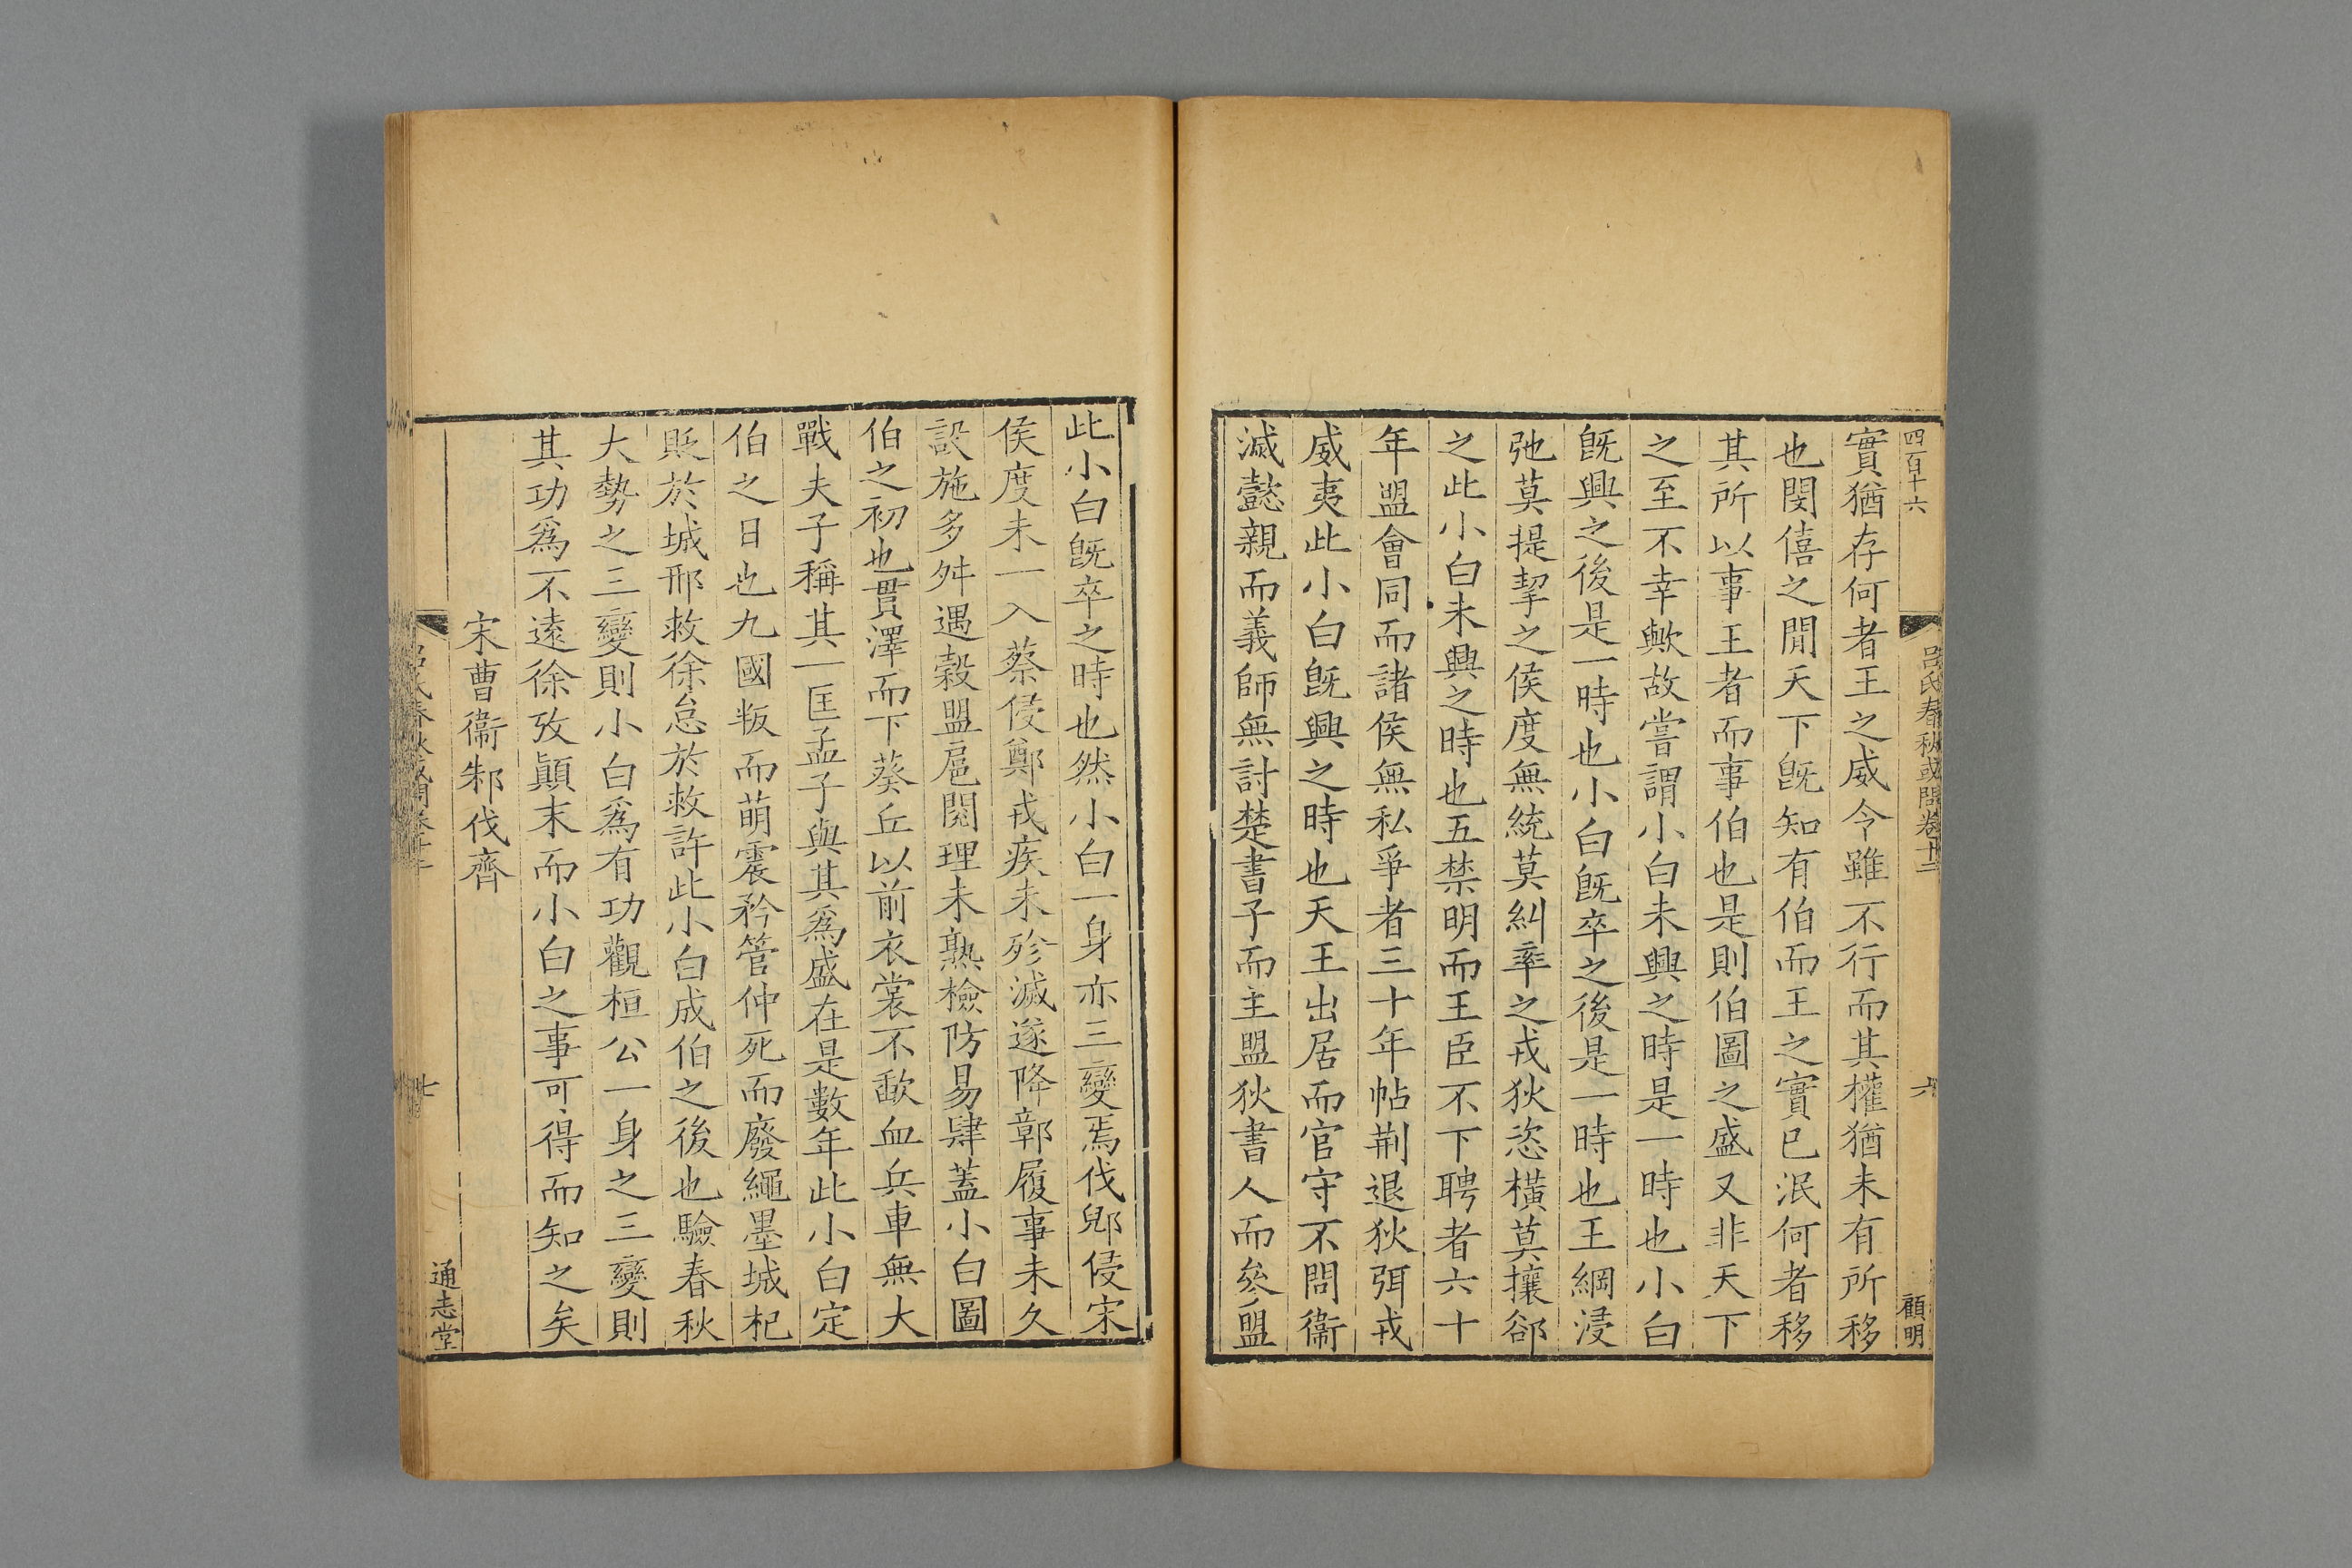 四百十六
吕氏春秋或問卷十三
六
顧明
實猶存何者王之威令雖不行而其權猶未有所移
也閔僖之閒天下旣知有伯而王之實已泯何者移
其所以事王者而事伯也是則伯圖之盛又非天下
之至不幸歟故嘗謂小白未興之時是一時也小白
旣興之後是一時也小白旣卒之後是一時也王綱浸
弛莫提挈之侯度無統莫糾率之戎狄恣橫莫攘郤
之此小白未興之時也五禁明而王臣不下聘者六十
年盟會同而諸侯無私爭者三十年帖荆退狄弭戎
威夷此小白旣興之時也天王出居而官守不問衞
滅懿親而義師無討楚書子而主盟狄書人而參盟
此小白旣卒之時也然小白一身亦三變焉伐郳侵宋
侯度未一入蔡侵鄭戎疾未殄滅遂降鄣履事未久
設施多舛遇榖盟扈閱理未熟檢防易肆蓋小白圖
伯之初也貫澤而下葵丘以前衣裳不歃血兵車無大
戰夫子稱其一匡孟子與其爲盛在是數年此小白定
伯之日也九國叛而萌震矜管仲死而廢繩墨城杞
貶於城邢救徐怠於救許此小白成伯之後也驗春秋
大勢之三變則小白爲有功觀桓公一身之三變則
其功爲不遠徐攷顚末而小白之事可得而知之矣
宋曹衞邾伐齊
七
通志堂